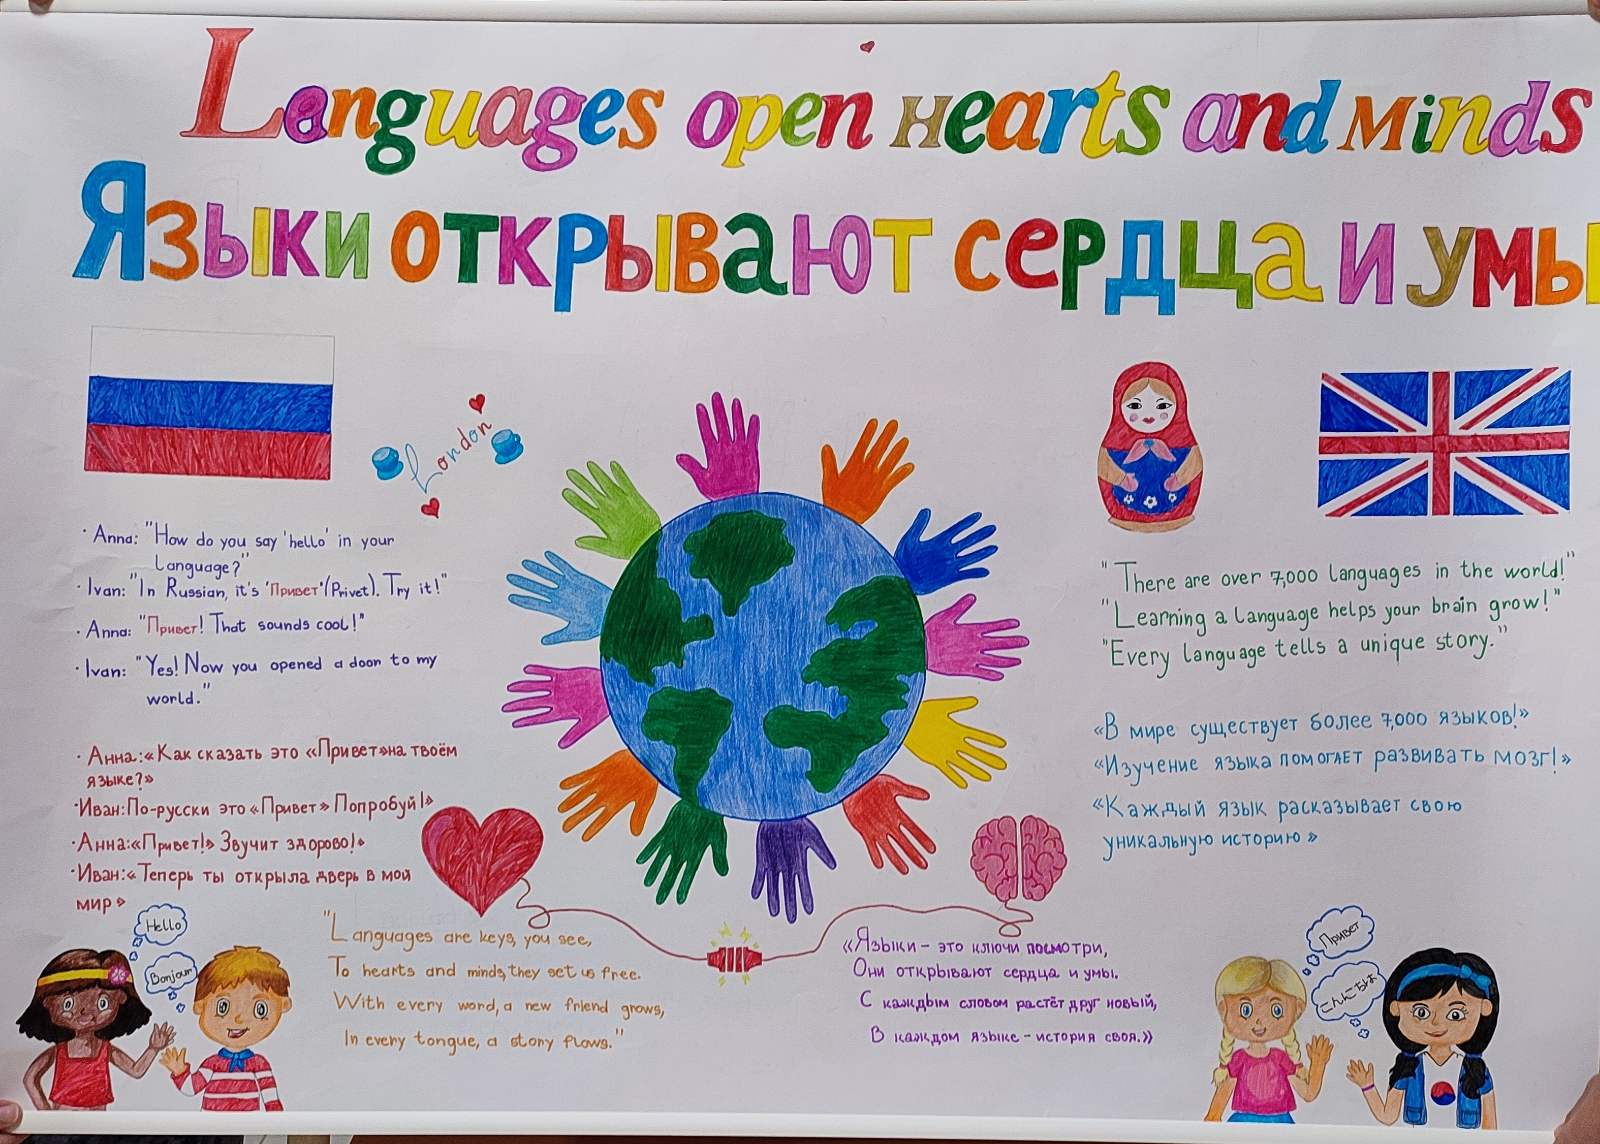 Languages open Hearts and Minds
Языки открывают сердца и умы
London
· Anna: "How do you say 'hello' in your
Language?"
· Ivan: "In Russian, it's 'Привет' (Privet). Try it!"
· Anna: "Привет! That sounds cool!"
· Ivan: "Yes! Now you opened a door to my
world."
· Анна:«Как сказать это «Привет»на твоём
языке?»
·Иван:По-русски это«Привет» Попробуй!»
·Анна:«Привет!» Звучит здорово!»
·Иван:«Теперь ты открыла дверь в мой
мир»
"There are over 7,000 languages in the world!"
"Learning a language helps your brain grow!"
"Every language tells a unique story."
«В мире существует более 7,000 языков!»
«Изучение языка помогает развивать мозг!»
«Каждый язык расказывает свою
уникальную историю»
Hello
Bonjour
"Languages are keys, you see,
To hearts and minds, they set us free.
With every word, a new friend grows,
In every tongue, a story flows."
«Языки – это ключи посмотри,
Они открывают сердца и умы.
С каждым словом растёт друг новый,
В каждом языке – история своя.»
Привет
こんにちは